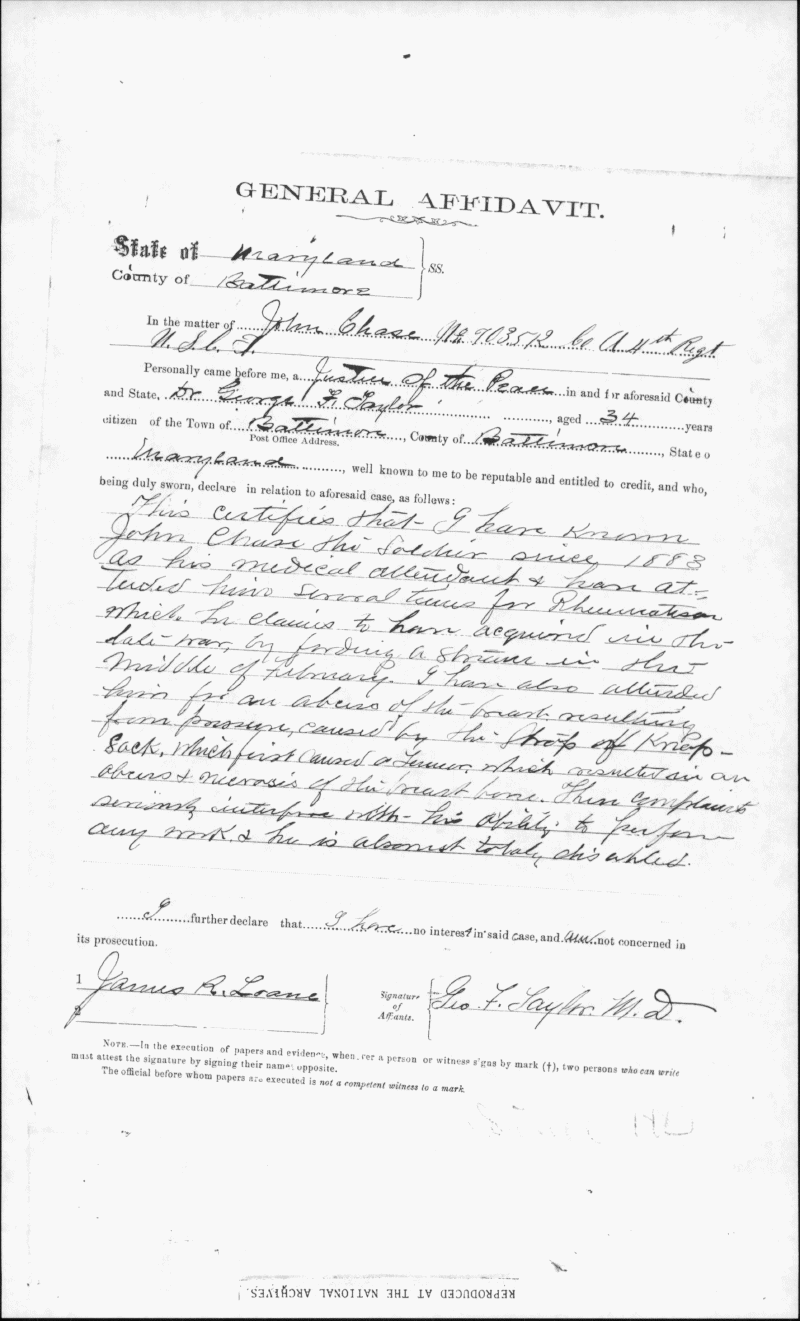 GENERAL AFFIDAVIT.
State of Maryland
SS.
County of Baltimore
In the matter of John Chase No 903512 Co A 4th Regt
U.S.C.T.
Personally came before me, a Justice of the Peace in and for aforesaid County
and State, Dr George F. Taylor, aged 34 years
citizen of the Town of Baltimore, County of Baltimore, State o
Post Office Address.
Maryland, well known to me to be reputable and entitled to credit, and who,
being duly sworn, declare in relation to aforesaid case, as follows:
This certifies that I have known
John Chase the soldier since 1883
as his medical attendant & have at-
tended him several times for Rheumatism
which he claims to have acquired in the
late war, by fording a stream in the
middle of February. I have also attended
him for an abcess of the breast resulting
from pressure, caused by the Strap of Knap-
sack, which first caused a tumor, which resulted in an
abcess & necrosis of the breast bone. These complaints
seriously interfere with his ability to perform
any work & he is alsomst totaly disabled.
I further declare that I have no interest in said case, and am not concerned in
its prosecution.
1 James R. Loane
2
Signature
of
Affiants.
Geo. F. Taylor. M.D.
NOTE.—In the execution of papers and evidence, whenever a person or witness signs by mark (†), two persons who can write
must attest the signature by signing their names opposite.
The official before whom papers are executed is not a competent witness to a mark.
REPRODUCED AT THE NATIONAL ARCHIVES.